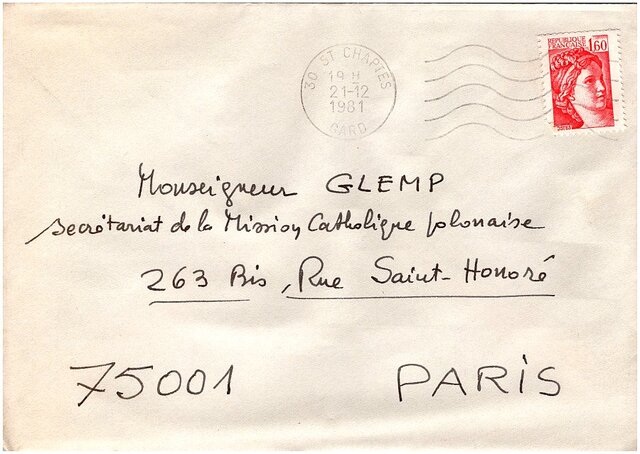 30 ST CHAPTES
19 H
21-12
1981
GARD
REPUBLIQUE
FRANCAISE
1,60
Monseigneur GLEMP
secrétariat de la Mission Catholique polonaise
263 Bis, Rue Saint-Honoré
75001 PARIS